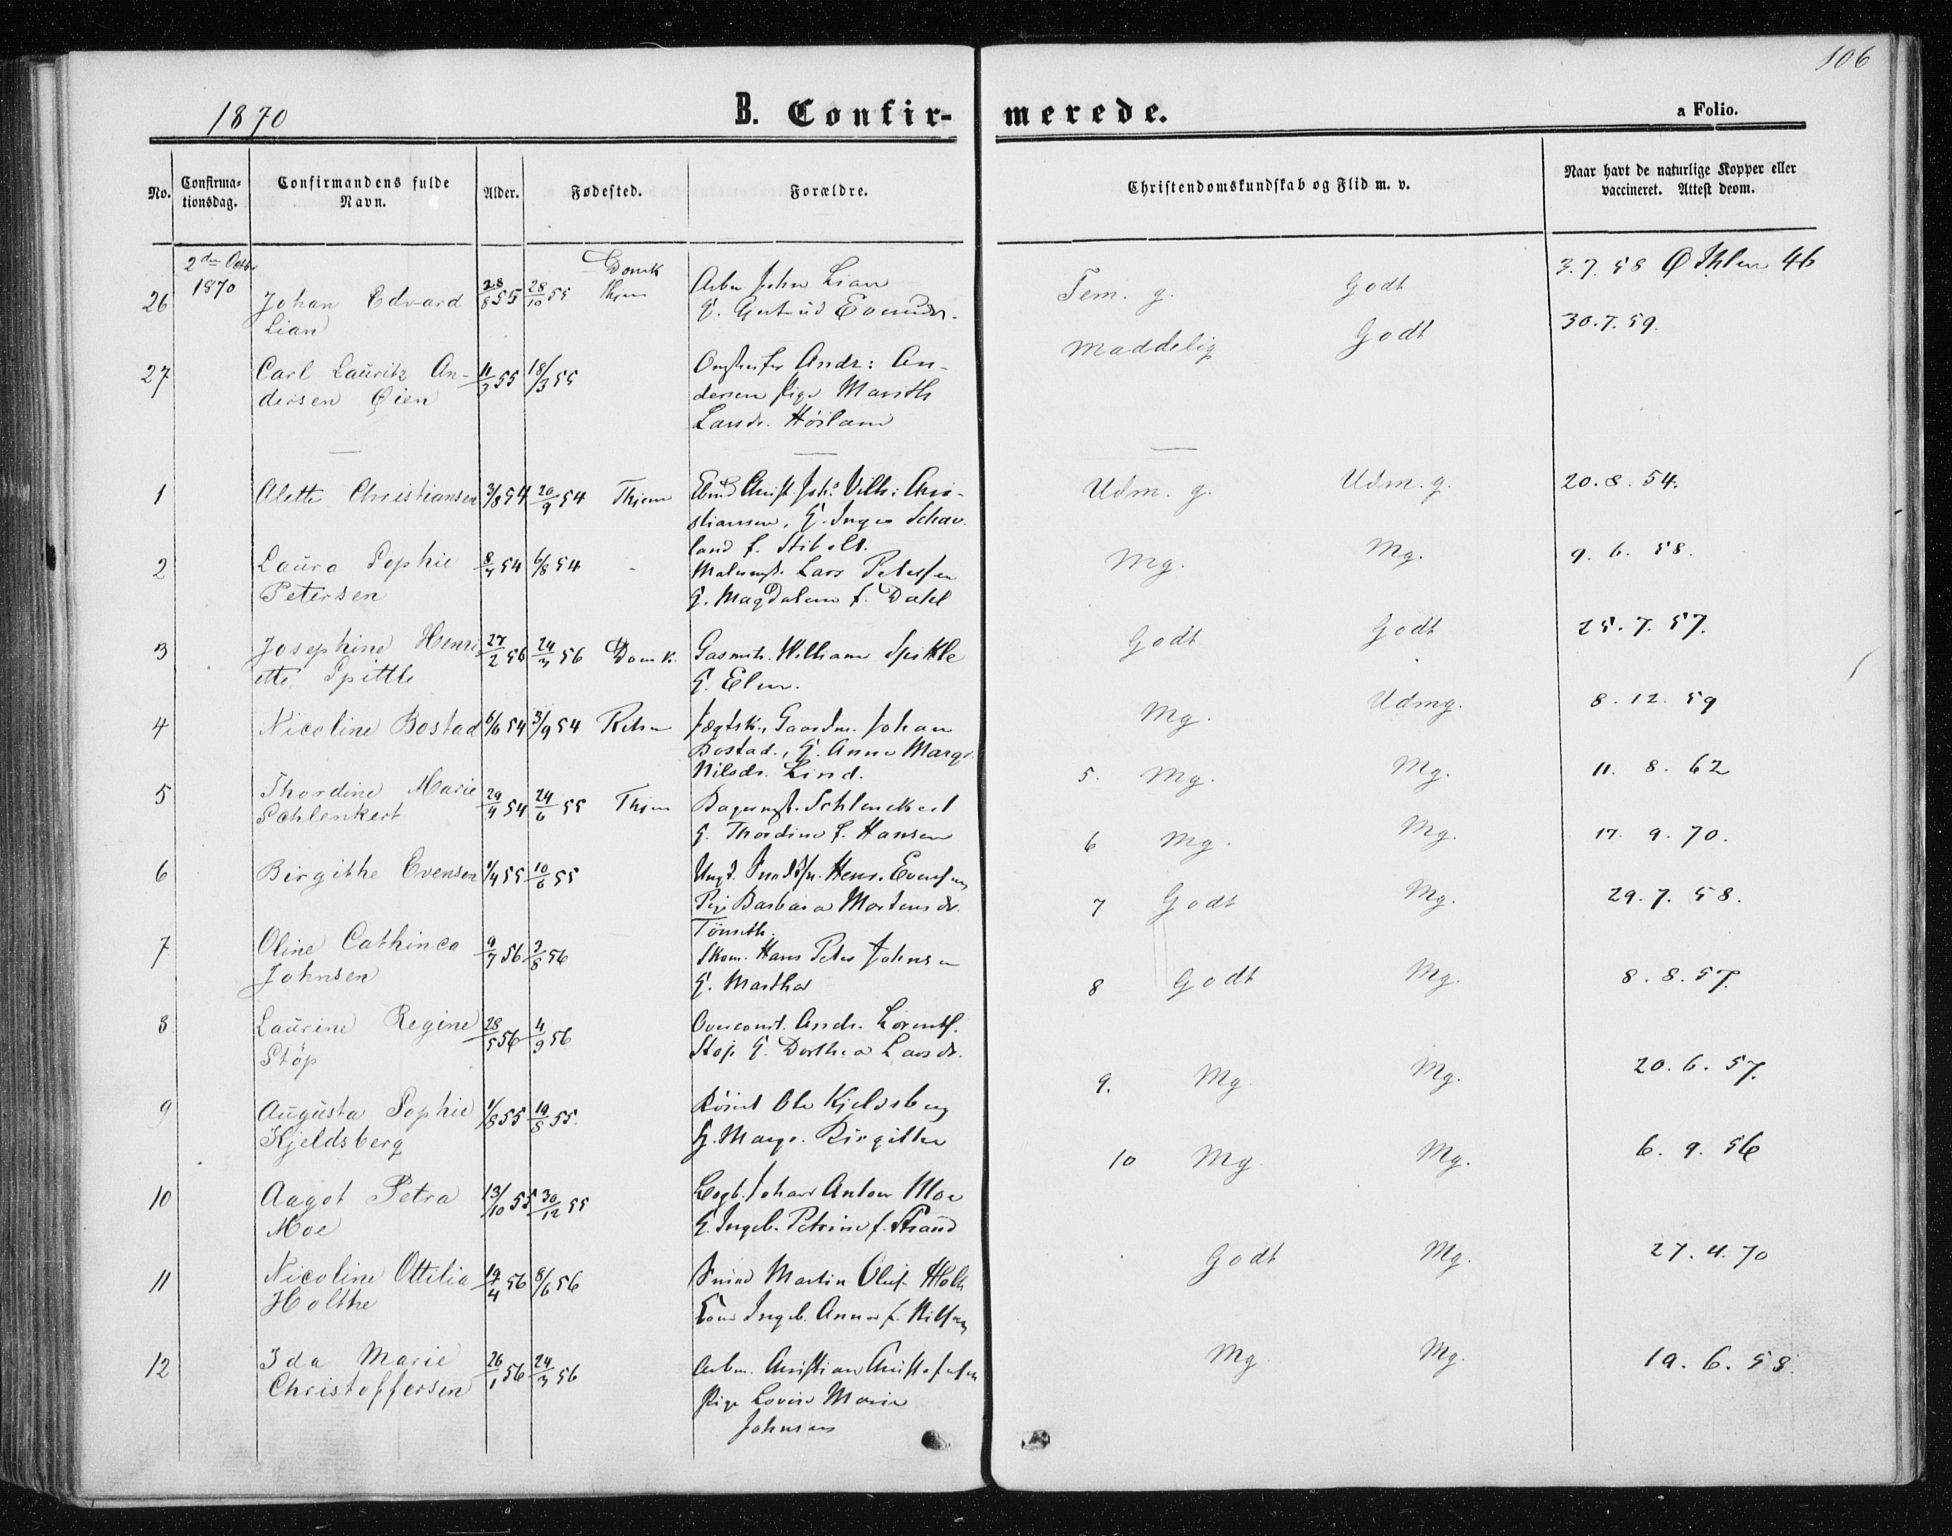 106
1870
B. Confirmerede.
a Folio.
No.
Confirma-
tionsdag.
Confirmandens fulde
Navn.
Alder.
Fødested.
Forældre.
Christendomskundskab og Flid m. v.
Naar havt de naturlige Kopper eller
vaccineret. Attest deom.
2den Octbr
1870
26 Johan Edvard 28/8 55 28/10 55 Domk Thjem Arbm John Lian Tem. g. Godt 3.7.58
Lian G. Gertrud
27 Carl Lauritz An- 11/2 55 18/3 55 Andr: An- Maddelig Godt 30.7.59.
dersen Øien dersen Pige Marith
Larsdr.
1 Alette Christiansen 3/8 54 20/9 54 Thjem Joh. Vilh: Chri- Udm. g. Udm. g. 20.8.54.
stiansen, G. Inger
land f.
2 Laura Sophie 8/7 54 6/8 54 - Malermst. Lars Petersen Mg. Mg. 9.6.58.
Petersen G. Magdalene f. Dahl
3 Josephine Henri 27/2 56 24/3 56 Domk. William Spittle Godt Godt 25.7.57.
ette Spittle G. Elen.
4 Nicoline Bostad 6/6 54 3/9 54 Jægtsk., Gaardm. Johan Mg. Udmg. 8.12.59
Bostad., G. Anne Margr.
Nilsdr. Lind.
5 Thordine Marie 29/4 54 24/6 55 Thjem Bagermst. Schlenckert 5. Mg. Mg. 11.8.62
Schlenkert G. Thordine f. Hansen
6 Birgithe Evensen 1/4 55 10/6 55 Ungk. Henr. Evensen 6 Mg. Mg. 17.9.70.
Pige Barbara Mortensdr.
Tønseth.
7 Oline Cathinca 9/7 56 3/8 56 Skom. Hans Peter Johnsen 7 Godt Mg. 29.7.58.
Johnsen G. Martha
8 Laurine Regine 28/5 56 4/9 56 Andr. Lorents. 8 Godt Mg. 8.8.57.
Støp Støp G. Dorthea Larsdr.
9 Augusta Sophie 1/8 55 19/8 55. Ole Kjeldsberg 9. Mg Mg. 20.6.57.
Kjeldsberg G. Margr. Birgitte
10 Aagot Petra 13/10 55. 30/12 55 Johan Anton Moe 10 Mg Mg. 6.9.56
Moe G. Ingeb. Petrine f. Strand
11 Nicoline Ottilia 19/4 56 8/6 56 Martin Oluf Holth Godt Mg. 27.4.70
Holthe Ingeb. Anna f. Nilsen
12 Ida Marie 26/1 56 24/3 56 Arbm. Christian Christofersen Mg Mg. 19.6.58.
Christoffersen Pige Lovise Marie
Johnsen